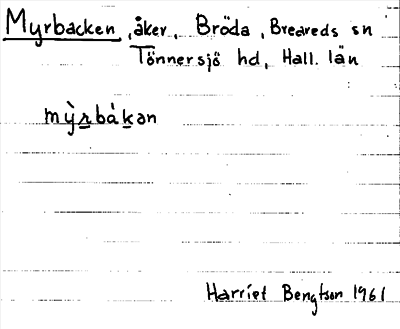 Myrbacken, åker, Bröda, Breareds sn
Tönnersjö hd, Hall. län
mỳrbákan
Harriet Bengtson 1961